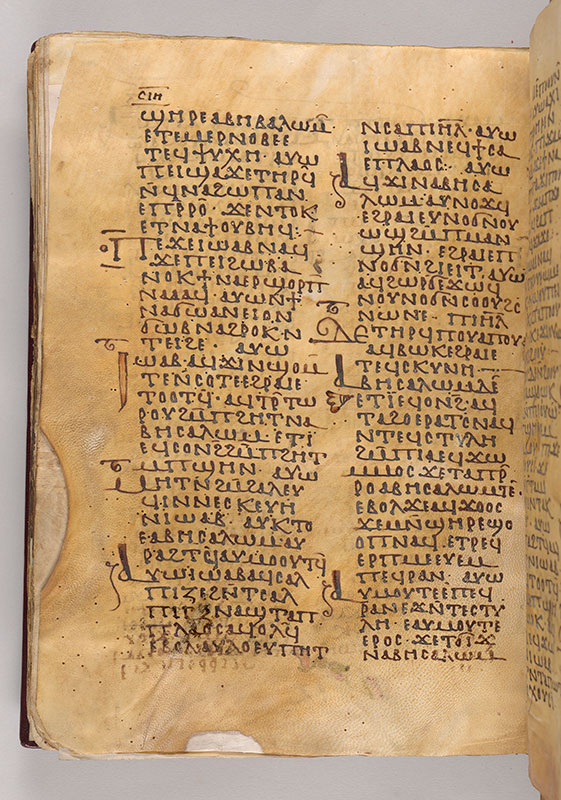 ⲥⲓⲏ
ϣⲏⲣⲉⲁⲃⲏⲥⲁⲗⲱⲙ
ⲉⲧⲙⲉⲣⲛⲟⲃⲉⲉ
ⲧⲉϥⲯⲩⲭⲏ· ⲁⲩⲱ
ⲡⲉⲓϣⲁϫⲉⲧⲏⲣϥ
ⲛϥⲛⲁϩⲱⲡⲁⲛ
ⲉⲡⲣⲣⲟ· ϫⲉⲛⲧⲟⲕ
ⲉⲧⲛⲁϯⲟⲩⲃⲏϥ·
ⲡⲉϫⲉⲓⲱⲁⲃⲛⲁϥ
ϫⲉⲡⲉⲓϩⲱⲃⲁ
ⲛⲟⲕϯⲛⲁⲉⲣϣⲟⲣⲡ
ⲛⲁⲁⲁϥ· ⲁⲩⲱⲛϯ
ⲛⲁϭⲱⲁⲛⲉⲓⲟⲛ
ϭⲱⲃⲛⲁϩⲣⲟⲕⲛ
ⲧⲉⲓϩⲉ· ⲁⲩⲱ
ⲓⲱⲁⲃ·ⲁϥϫⲓⲛϣⲟⲙ
ⲧⲉⲛⲥⲟⲧⲉⲉϩⲣⲁⲓⲉ
ⲧⲟⲟⲧϥ· ⲁϥⲧⲣⲧⲱ
ⲣⲟⲩϩⲙⲡϩⲏⲧⲛⲁ
ⲃⲏⲥⲁⲗⲱⲙ· ⲉⲧⲓ
ⲉϥⲥⲟⲛϩϩⲙⲡϩⲏⲧ
ⲙⲡϣⲏⲛ· ⲁⲩⲱ
ⲙⲏⲧⲛϩⲙϩⲁⲗⲉⲩ
ϥⲓⲛⲛⲉⲥⲕⲉⲩⲏ
ⲛⲓⲱⲁⲃ· ⲁⲩⲕⲧⲟ
ⲉⲁⲃⲏⲥⲁⲗⲱⲙⲁⲩ
ⲣⲁϩⲧϥⲁⲩⲙⲟⲟⲩⲧϥ
ⲁⲩⲱⲓⲱⲁⲃⲁϥⲥⲁⲗ
ⲡⲓⲍⲉϩⲛⲧⲥⲁⲗ
ⲡⲓⲅⲝⲛⲁϣⲧⲁⲡ
ⲡⲉⲗⲁⲟⲥ
ⲉⲩⲡⲏⲧ
ⲛⲥⲁⲡⲓⲏⲗ· ⲁⲩⲱ
ⲓⲱⲁⲃⲛⲉϥϯⲥⲁ
ⲉⲡⲗⲁⲟⲥ· ⲁⲩⲱ
ⲁϥϫⲓⲛⲁⲃⲏⲥⲁ
ⲗⲱⲙ·ⲁⲩⲛⲟϫϥ
ⲉϩⲣⲁⲓⲉⲩⲛⲟϭⲛⲟⲩ
ⲱϣϩⲙⲡⲙⲁⲛ
ϣⲏⲛ· ⲉϩⲣⲁⲓⲉⲡ
ⲛⲟϭⲛϩⲓⲉⲓⲧ· ⲁⲩⲱ
ⲁϥⲥⲱⲣϭⲉϫⲱϥ
ⲛⲟⲩⲛⲟϭⲛⲥⲟⲟⲩϩⲥ
ⲛⲱⲛⲉ· ⲡⲓⲏⲗ
ⲇⲉⲧⲏⲣϥⲡⲟⲩⲁⲡⲟⲩⲁ
ⲁϥⲃⲱⲕⲉϩⲣⲁⲓⲉ
ⲧⲉϥⲥⲕⲩⲛⲏ·
ⲁⲃⲏⲥⲁⲗⲱⲙⲇⲉ
ⲉⲧⲓⲉϥⲟⲛϩ· ⲁϥ
ⲧⲁϩⲟⲉⲣⲁⲧⲥⲛⲁϥ
ⲛⲧⲉϥⲥⲧⲩⲗⲏ
ϩⲙⲡⲙⲁⲉϥϫⲱ
ⲙⲙⲟⲥϫⲉⲧⲁⲡⲣ
ⲣⲟⲁⲃⲏⲥⲁⲗⲱⲙⲧⲉ·
ⲉⲃⲟⲗϫⲉⲁϥϫⲟⲟⲥ
ϫⲉⲙⲙⲛϣⲏⲣⲉϣⲟ
ⲟⲡⲛⲁϥ· ⲉⲧⲣⲉϥ
ⲉⲣⲡⲙⲉⲉⲩⲉⲙ
ⲡⲉϥⲣⲁⲛ· ⲁⲩⲱ
ⲁⲩⲙⲟⲩⲧⲉⲉⲡⲉϥ
ⲣⲁⲛⲉϫⲛⲧⲉⲥⲧⲩ
ⲗⲏ· ⲉⲁⲩⲙⲟⲩⲧⲉ
ⲉⲣⲟⲥ· ϫⲉⲧϭⲓϫ
ⲛⲁⲃⲏⲥⲁⲗⲱⲙ